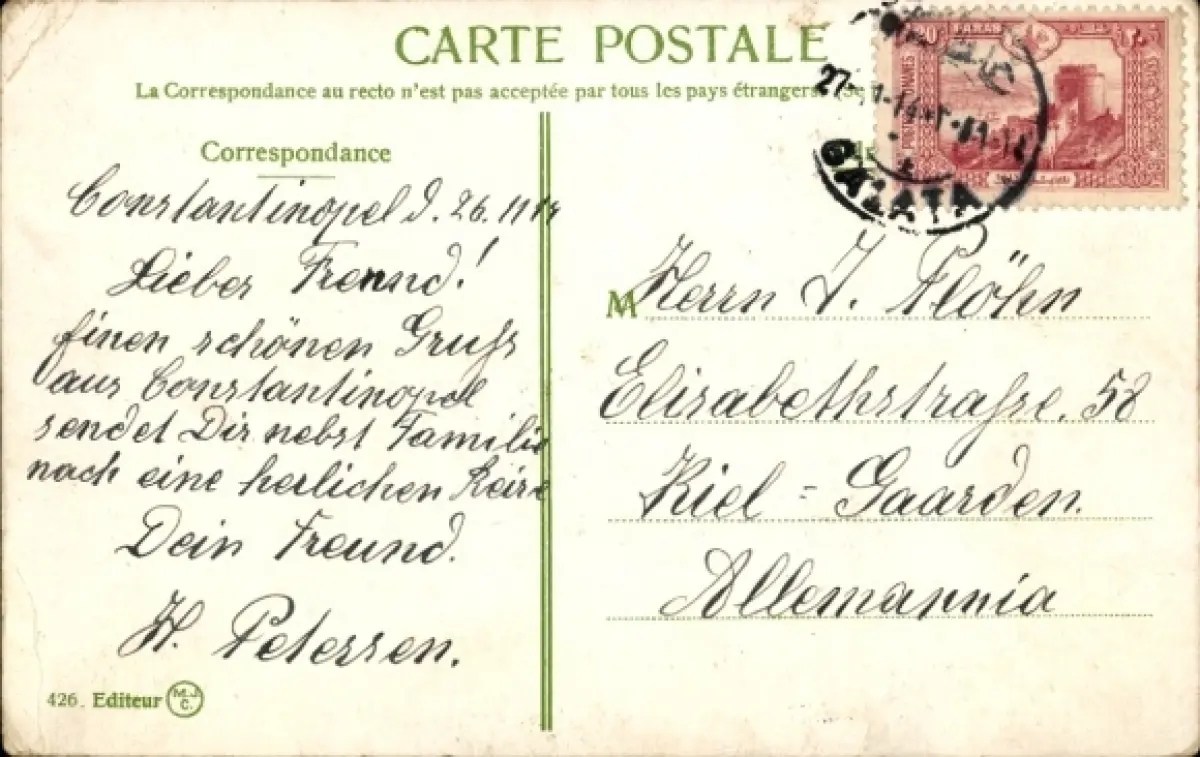 CARTE POSTALE
La Correspondance au recto n'est pas acceptée par tous les pays étrangers. (Se
Correspondance
Constantinopel d. 26. 11 14
Lieber Freund!
Einen schönen Gruß
aus Constantinopel
sendet Dir nebst Familie
nach eine herlichen Reise
Dein Freund.
H. Petersen.
426. Editeur M.J.C.
20 PARAS ٢٠
27
14
GALATA
M
Herrn J. Plöhn
Elisabethstraße. 58
Kiel = Gaarden.
Allemannia